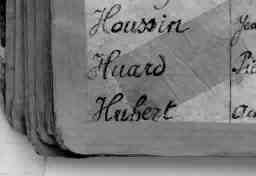 Houssin
Huard
Hubert